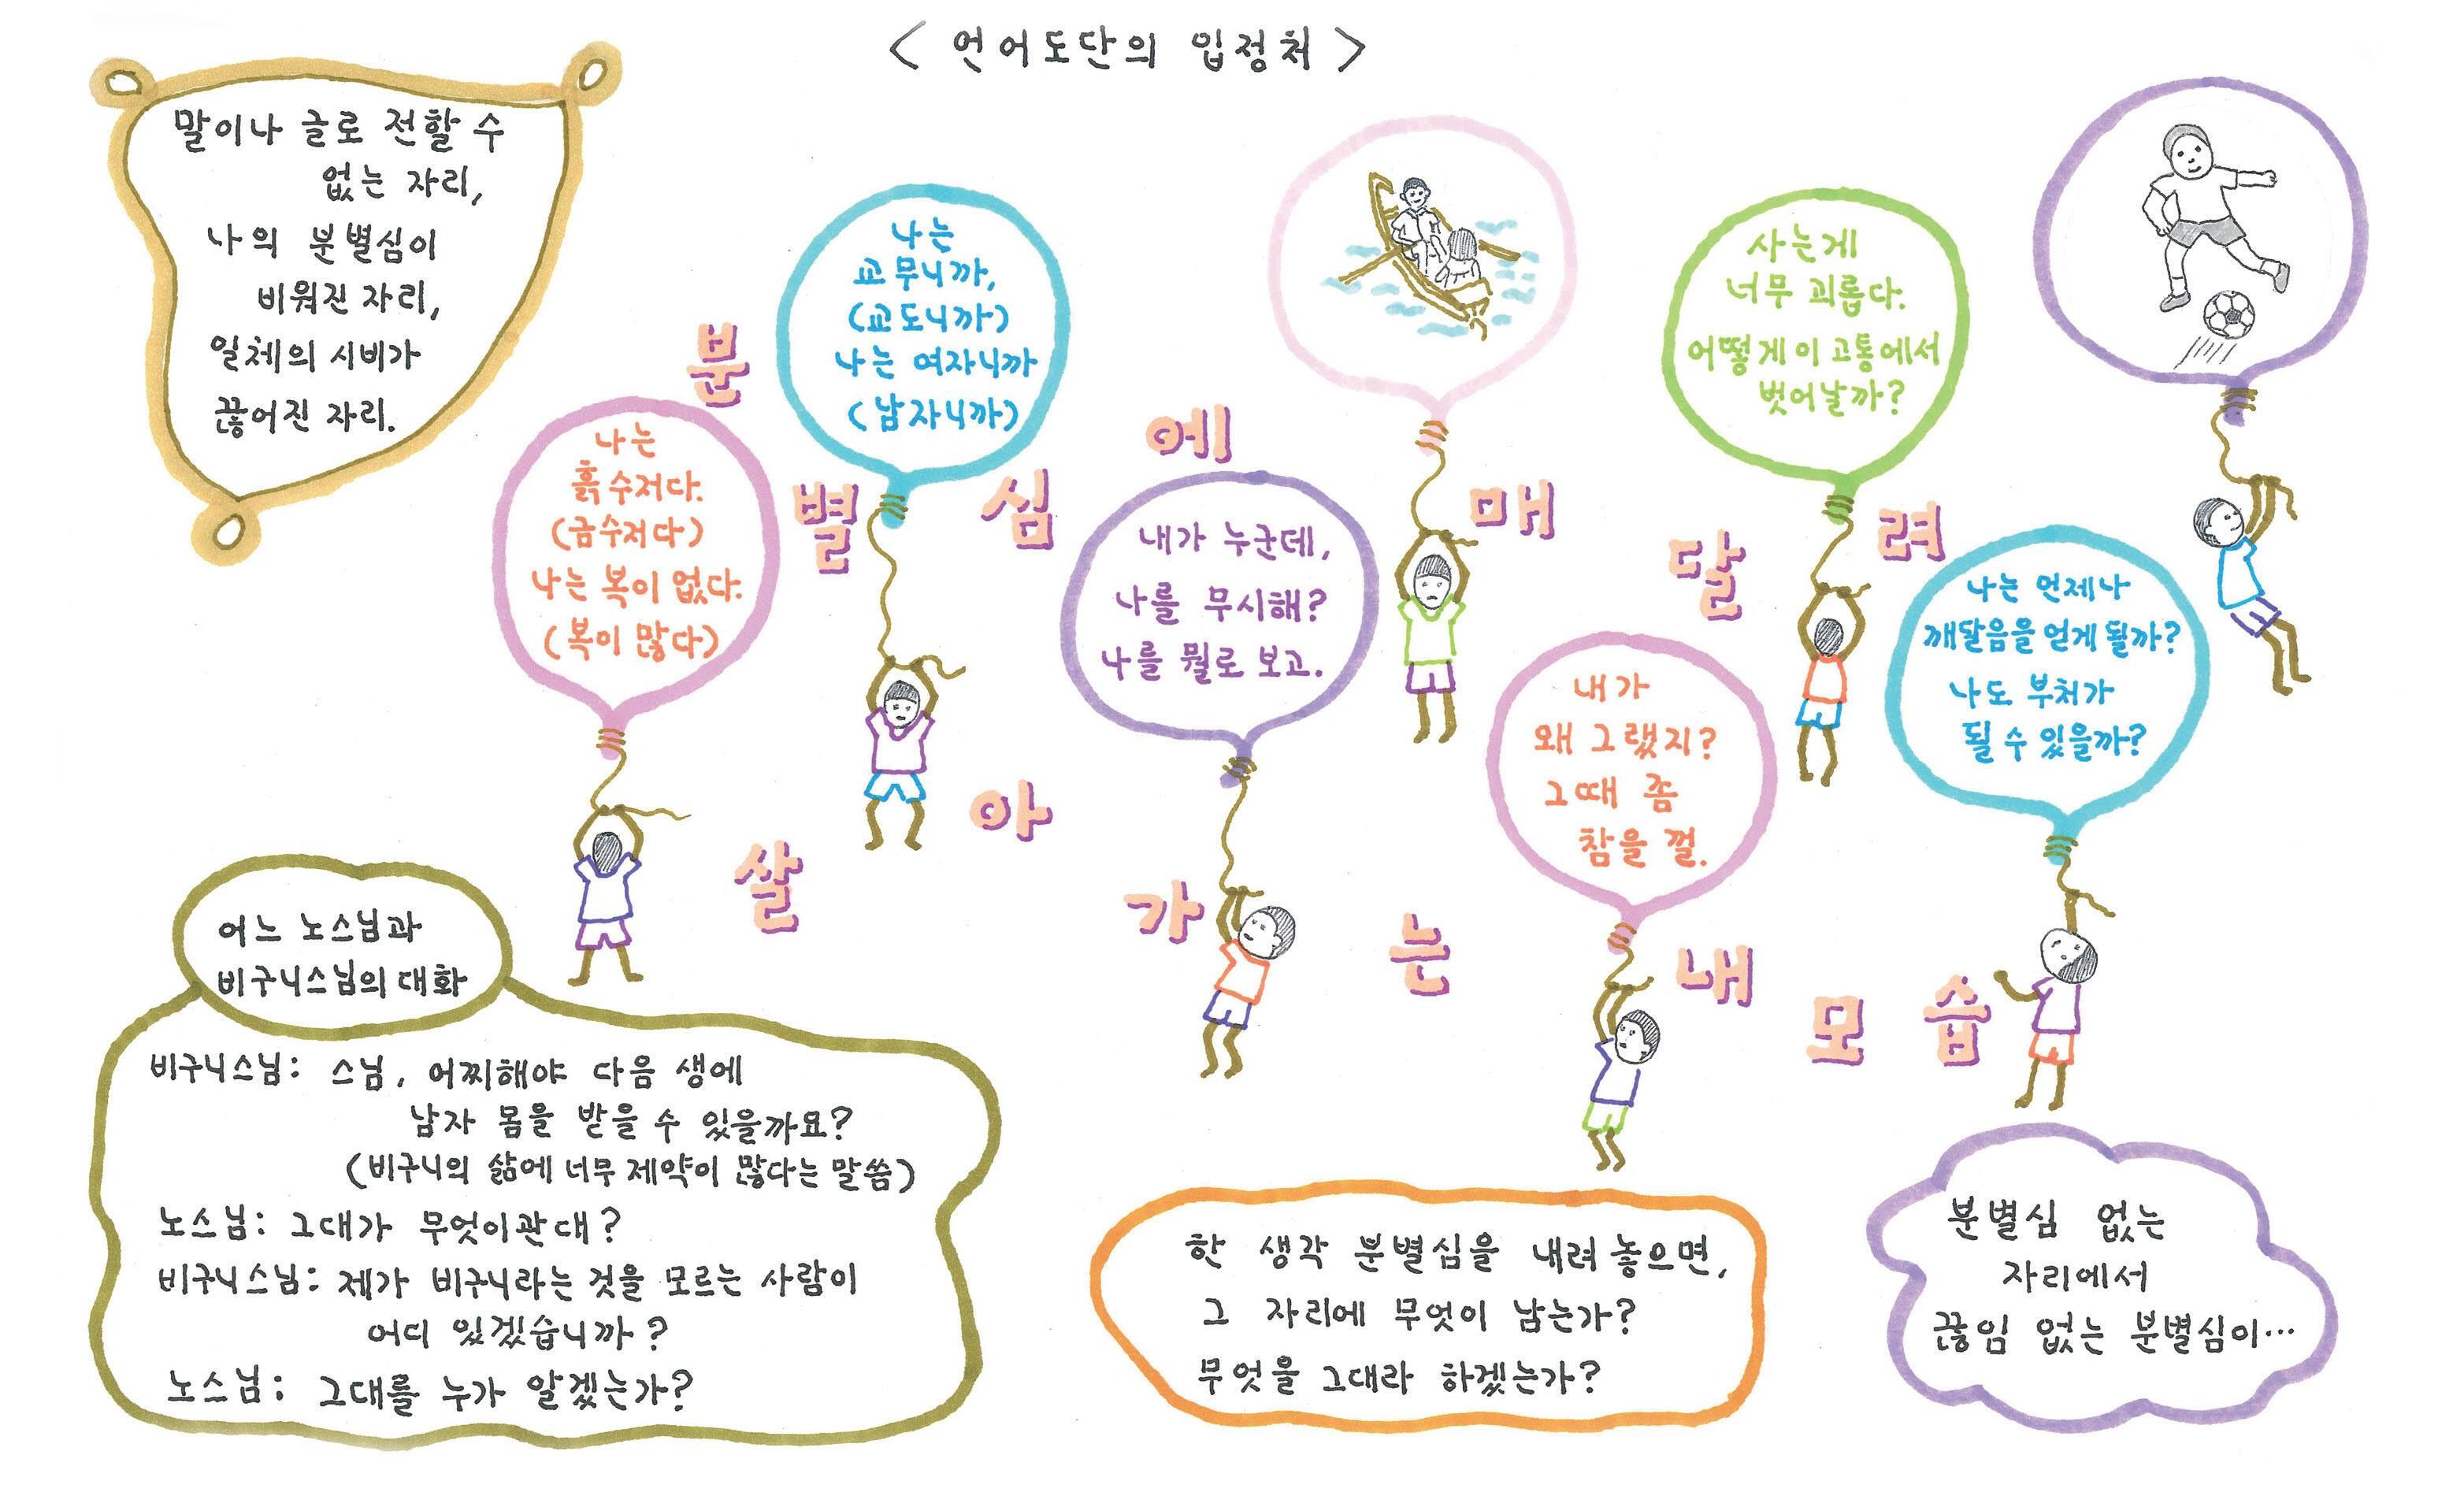 < 언어도단의 입정처 >
말이나 글로 전할 수
없는 자리,
나의 분별심이
비워진 자리,
일체의 시비가
끊어진 자리.
나는
흙수저다.
(금수저다)
나는 복이 없다.
(복이 많다)
나는
교무니까,
(교도니까)
나는 여자니까
(남자니까)
내가 누군데,
나를 무시해?
나를 뭘로 보고.
사는게
너무 괴롭다.
어떻게 이 고통에서
벗어날까?
내가
왜 그랬지?
그때 좀
참을 껄.
나는 언제나
깨달음을 얻게 될까?
나도 부처가
될 수 있을까?
분별심에 매달려
살아가는 내 모습
어느 노스님과
비구니스님의 대화
비구니스님: 스님, 어찌해야 다음 생에
남자 몸을 받을 수 있을까요?
(비구니의 삶에 너무 제약이 많다는 말씀)
노스님: 그대가 무엇이관대?
비구니스님: 제가 비구니라는 것을 모르는 사람이
어디 있겠습니까?
노스님: 그대를 누가 알겠는가?
한 생각 분별심을 내려놓으면,
그 자리에 무엇이 남는가?
무엇을 그대라 하겠는가?
분별심 없는
자리에서
끊임 없는 분별심이…